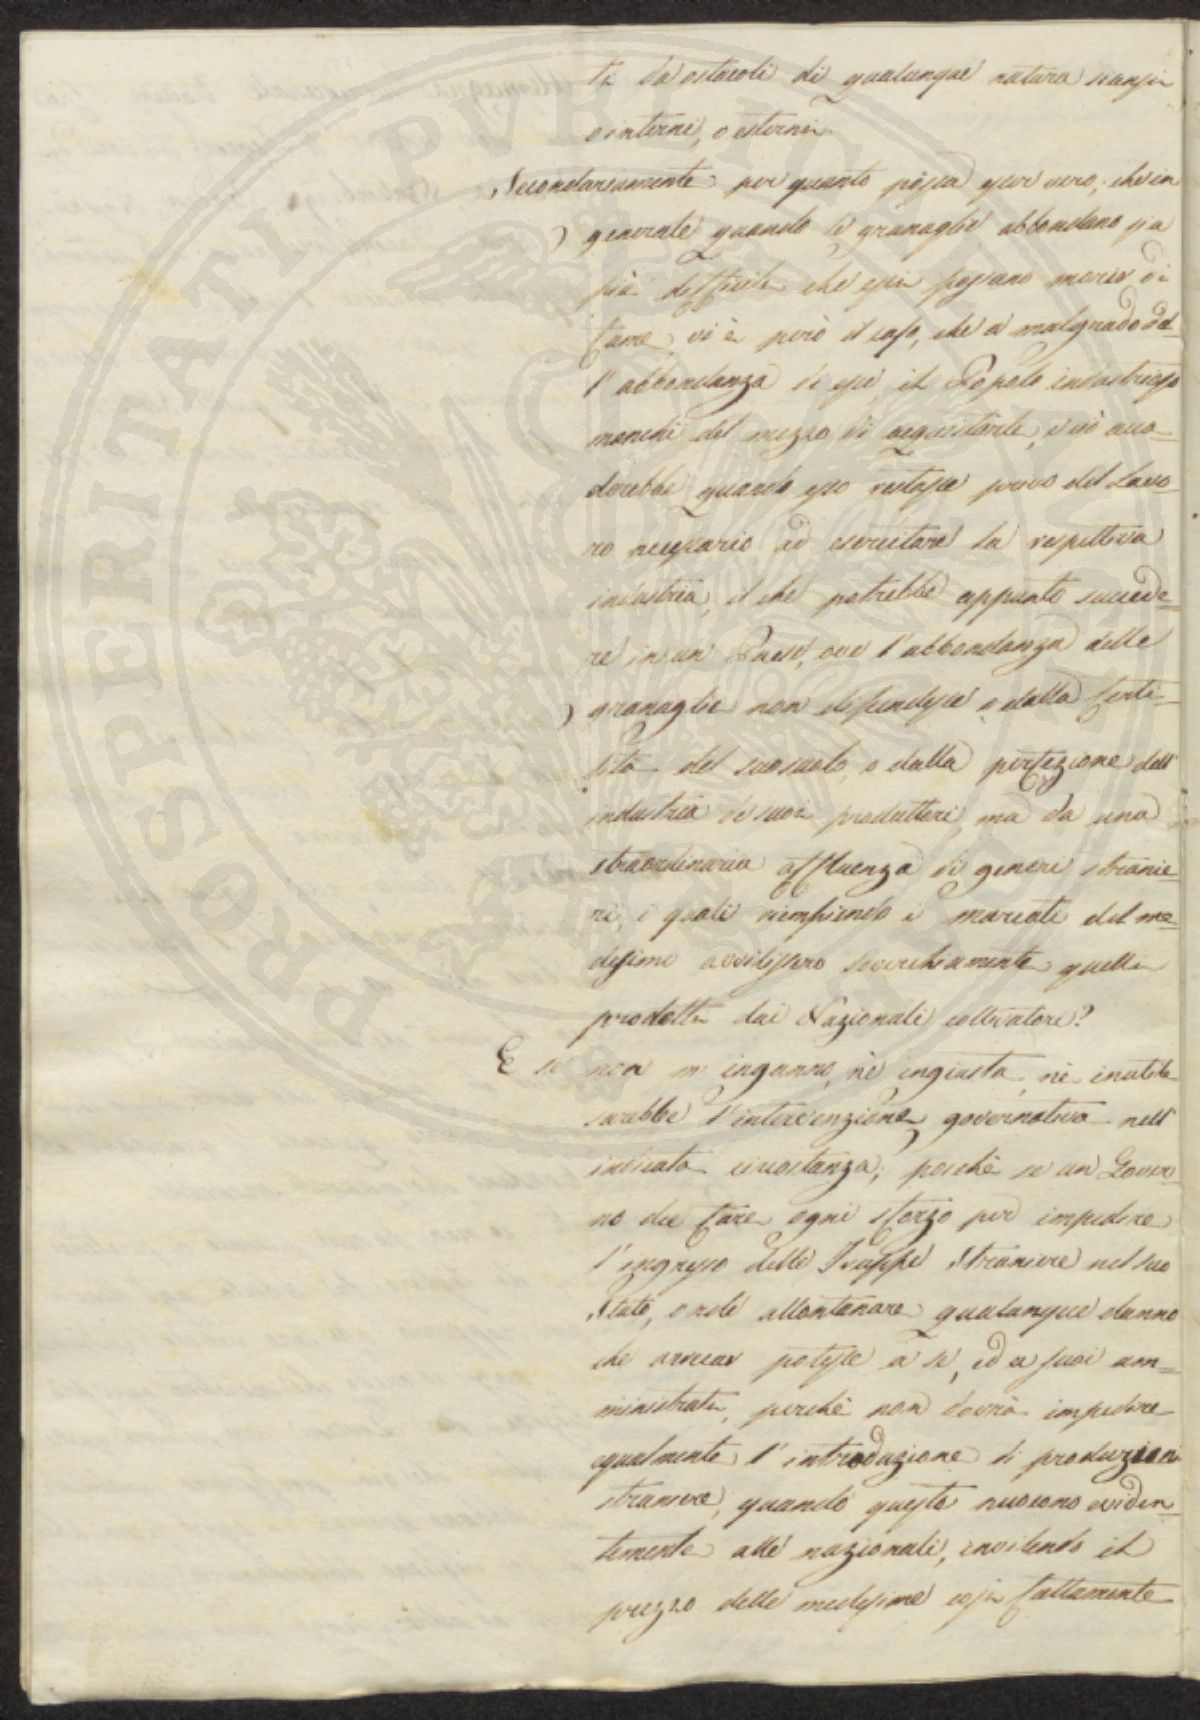 ti da ostacoli di qualunque natura siansi
o interni, o esterni.
Secondariamente per quanto possa esser vero, che in
generale quando le granaglie abbondano sia
più difficile che essi possano morir di
fame, vi è però il caso, che a malgrado del-
l'abbondanza di esse, il Popolo industrioso
manchi del mezzo di acquistarle, e ciò acca-
derebbe quando esso restasse privo del Lavo-
ro necessario ad esercitare la respettiva
industria, il che potrebbe appunto succede-
re in un Paese, ove l'abbondanza delle
granaglie non dipendesse o dalla ferti-
lità del suo suolo, o dalla perfezione dell'
industria de suoi produttori, ma da una
straordinaria affluenza di generi stranie-
ri, i quali riempiendo i mercati del me-
desimo avvilissero soverchiamente quelli
prodotti dai Nazionali coltivatori?
E se non m'inganno, nè ingiusta, nè inutile
sarebbe l'intervenzione governativa nell'
indicata circostanza; poichè se un Gover-
no dee fare ogni sforzo per impedire
l'ingresso delle Truppe Straniere nel suo
Stato, onde allontanare qualunque danno
che arrecar potesse a se, ed a suoi am-
ministrati, perchè non dovrà impedire
egualmente l'introduzione di produzioni
straniere, quando queste nuocono eviden-
temente alle nazionali, invilendo il
prezzo delle medesime così fattamente
PROSPERITATI PVBLICAE